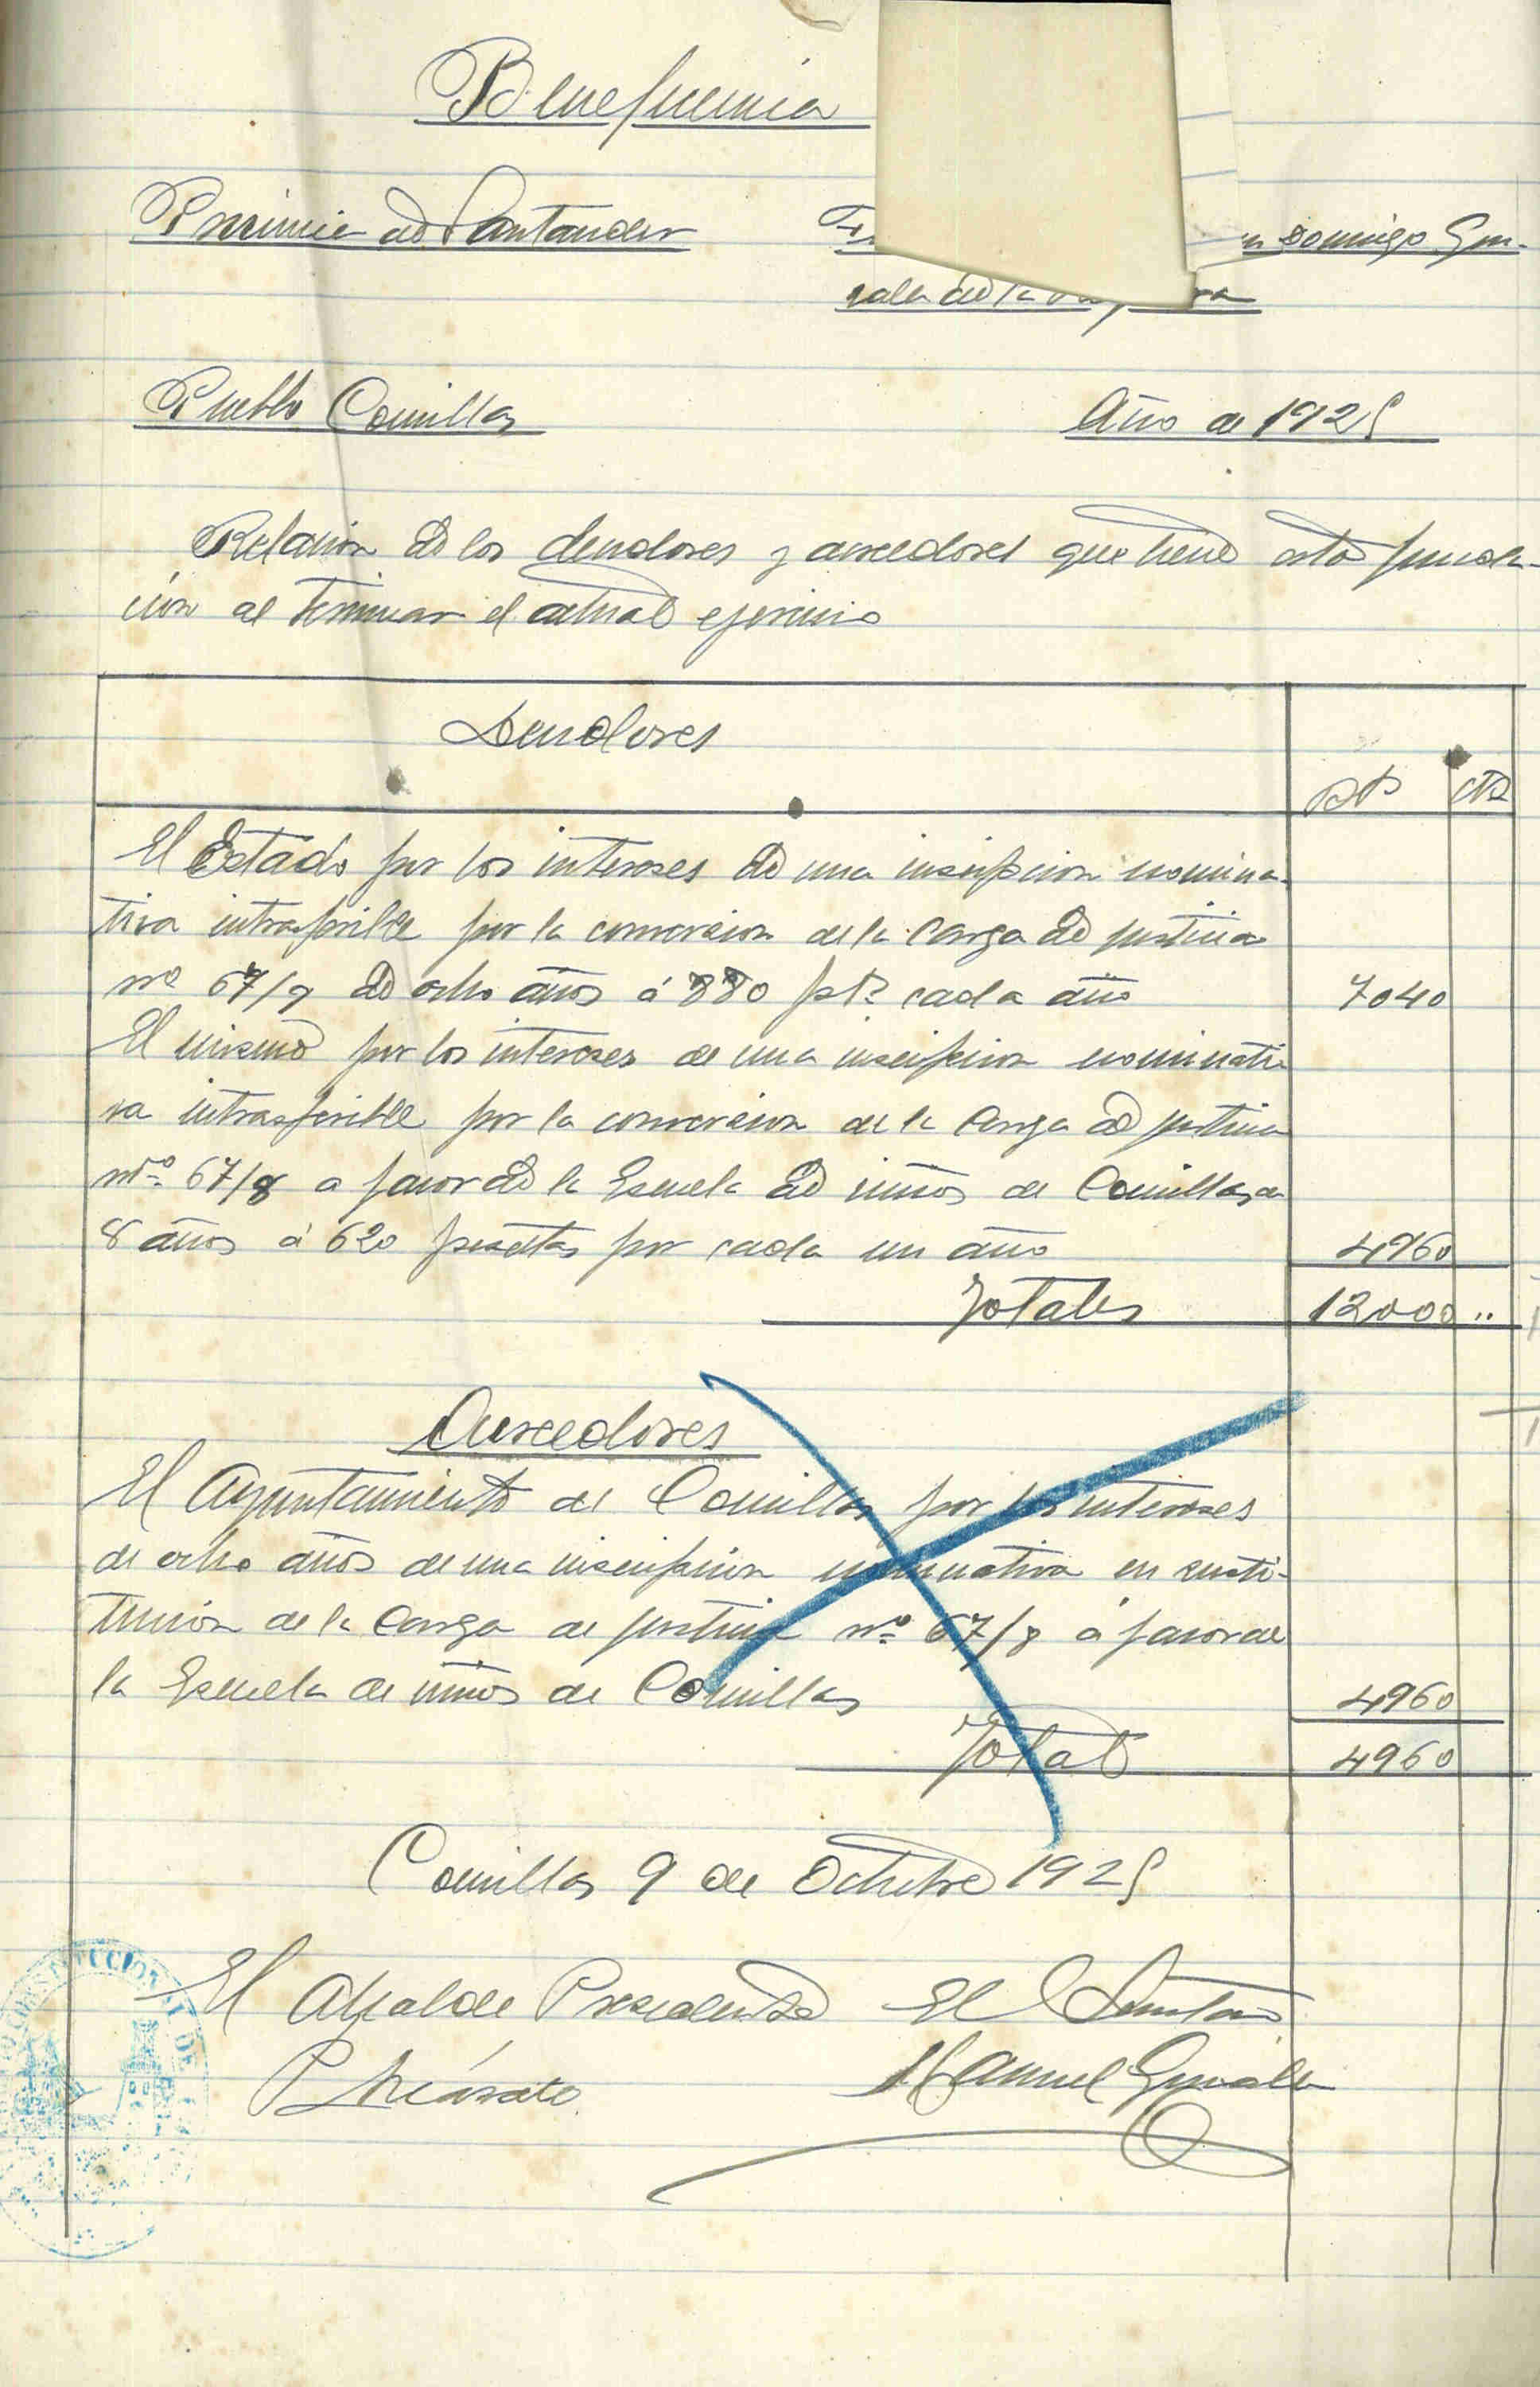 Beneficencia
Provincia de Santander
n Domingo Gon-
zalez de la
Pueblo Comillas
Año de 1925
Relación de los deudores y acreedores que tiene esta funda-
ción al terminar el actual ejercicio
Deudores
pts cts
El Estado por los intereses de una inscripcion nomina-
tiva intrasferible por la conversion de la Carga de justicia
nº 67/9 de ocho años á 880 pts cada año 7040
El mismo por los intereses de una inscripcion nominati
va intrasferible por la conversion de la Carga de justicia
nº 67/8 a favor de la Escuela de niños de Comillas, de
8 años á 620 pesetas por cada un año 4960
Totales 12000 ..
Acreedores
El Ayuntamiento de Comillas por los intereses
de ocho años de una inscripcion nominativa en susti-
tución de la Carga de justicia nº 67/8 á favor de
la Escuela de niños de Comillas 4960
Total 4960
Comillas 9 de Octubre 1925
El Alcalde Presidente El Secretario
Manuel Gonzalez
CONSTITUCIONAL DE